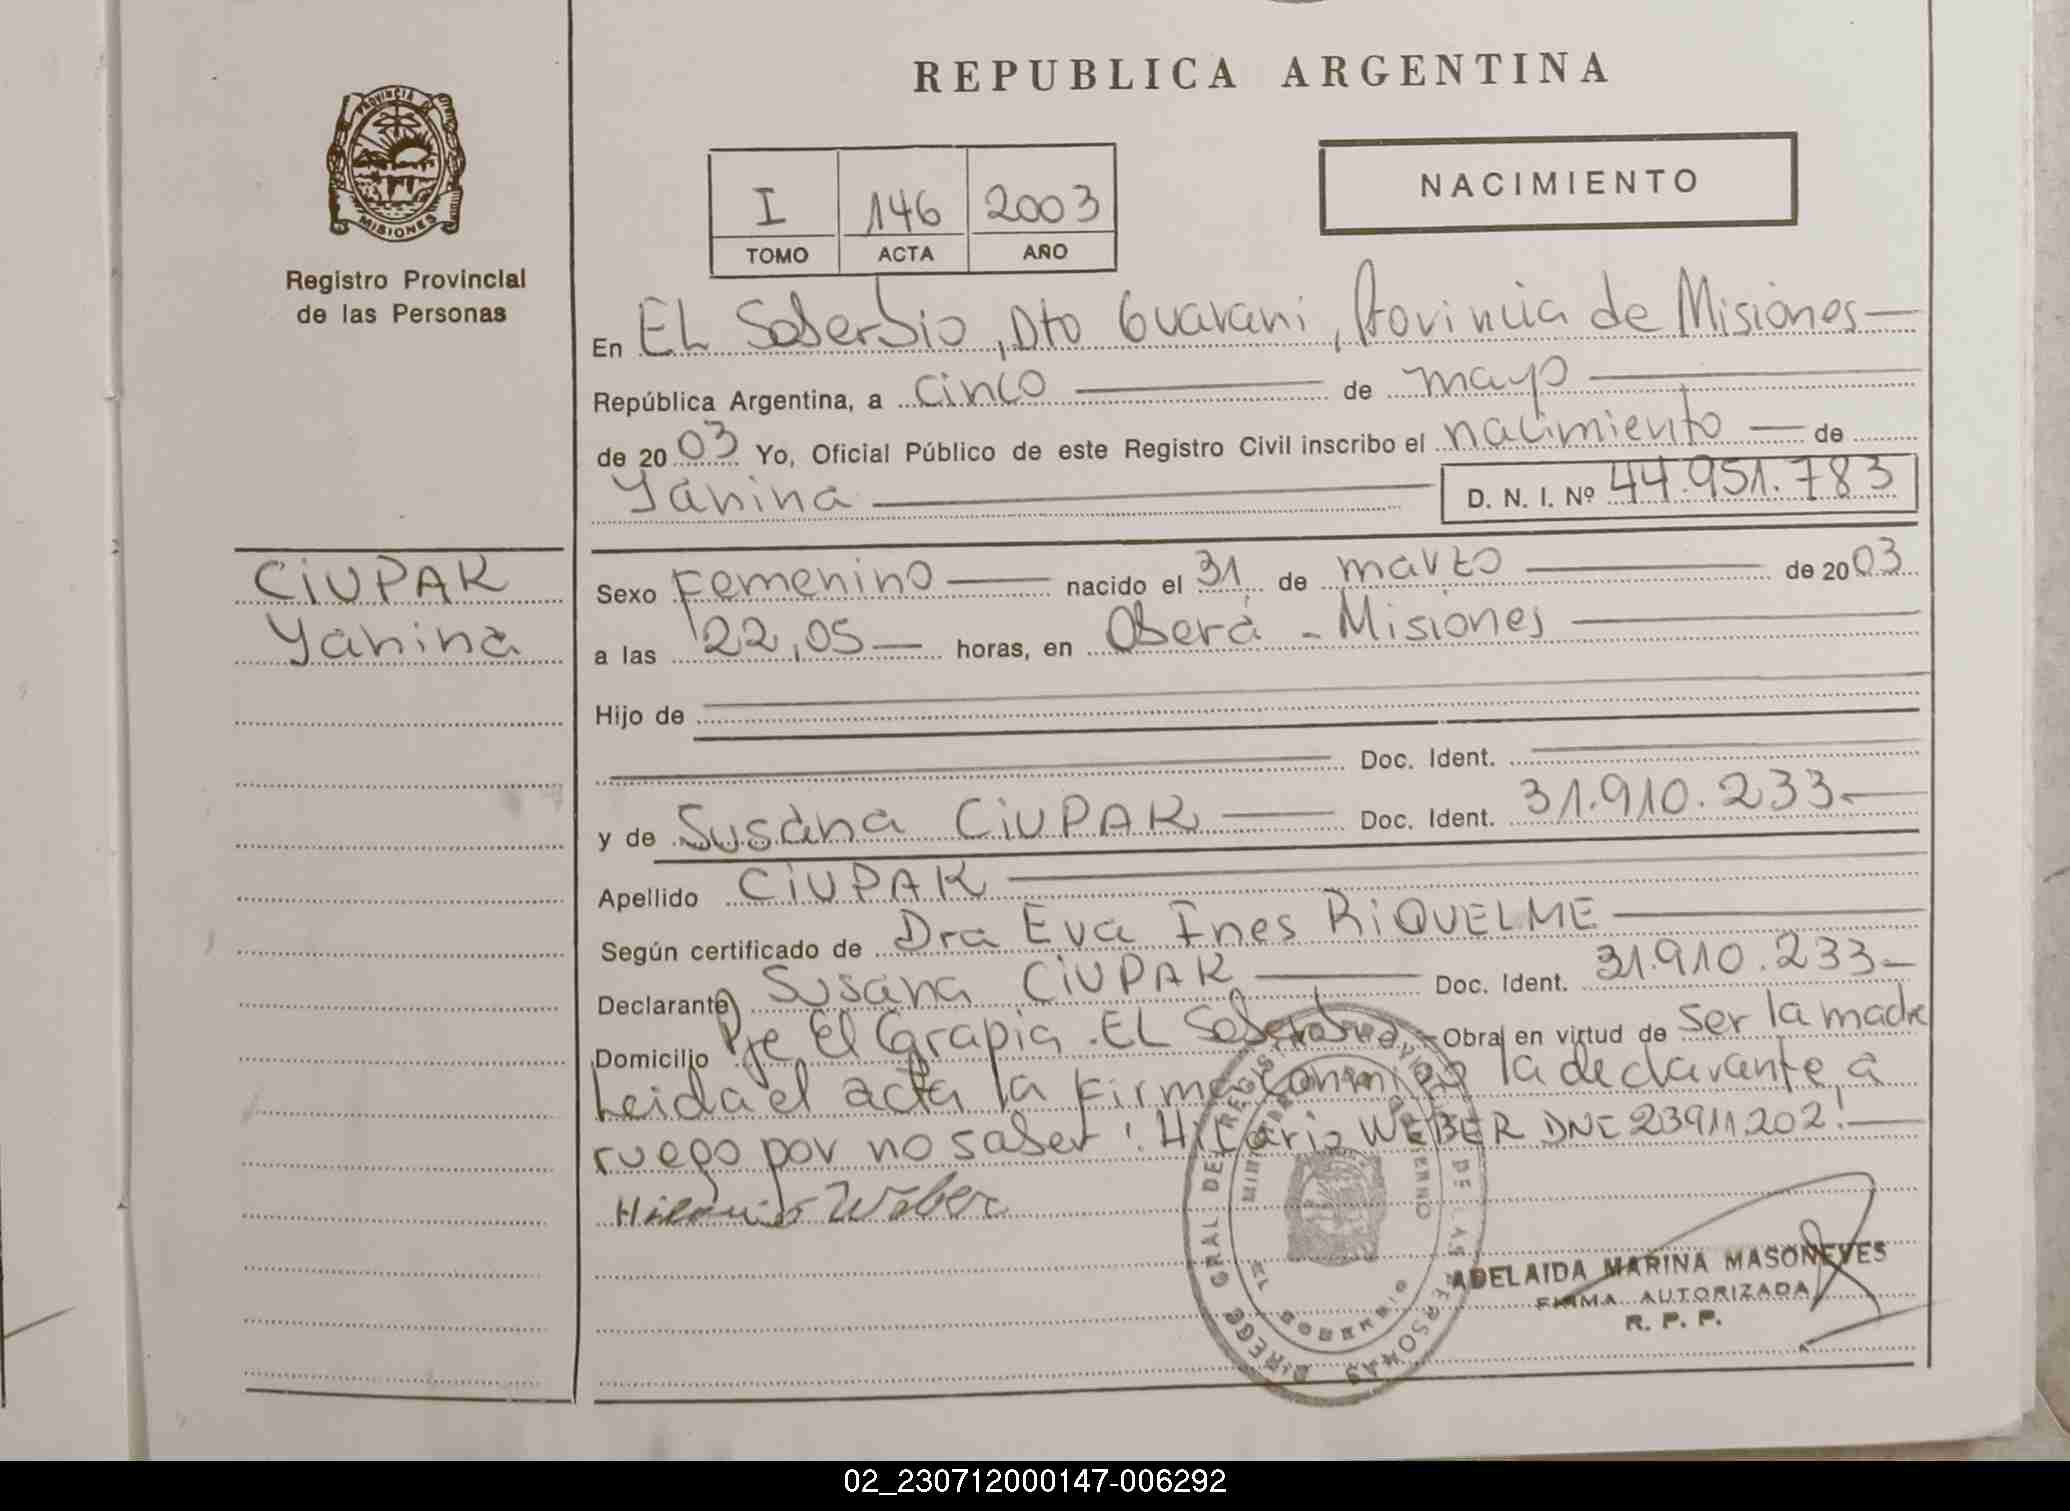 REPUBLICA ARGENTINA
PROVINCIA
MISIONES
Registro Provincial
de las Personas
I 146 2003
TOMO ACTA AÑO
NACIMIENTO
En EL Soberbio, Dto Guarani, Provincia de Misiones
República Argentina, a cinco de mayo
de 2003 Yo, Oficial Público de este Registro Civil inscribo el nacimiento de
Yanina D. N. I. Nº 44.951.783
CIUPAK
Yanina
Sexo Femenino nacido el 31 de marzo de 2003
a las 22,05 horas, en Oberá - Misiones
Hijo de
Doc. Ident.
y de Susana CIUPAK Doc. Ident. 31.910.233
Apellido CIUPAK
Según certificado de Dra Eva Ines RIQUELME
Declarante Susana CIUPAK Doc. Ident. 31.910.233
Domicilio Pje El Grapia. EL Soberbio Obra en virtud de ser la madre
Leida el acta la firma conmigo la declarante, a
ruego por no saber: Hilario WEBER DNI 23911202!
Hilario Weber
ADELAIDA MARINA MASONEVES
FIRMA AUTORIZADA
R. P. P.
02_230712000147-006292